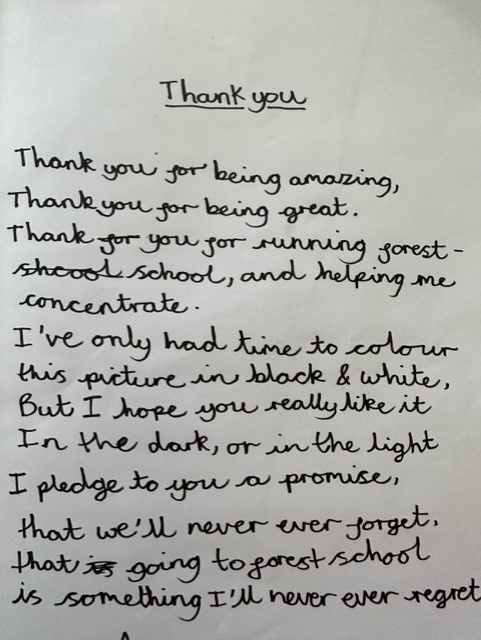 Thank you
Thank you for being amazing,
Thank you for being great.
Thank for you for running forest-
shcool school, and helping me
concentrate.
I've only had time to colour
this picture in black & white,
But I hope you really like it
In the dark, or in the light
I pledge to you a promise,
that we'll never ever forget,
that is going to forest school
is something I'll never ever regret